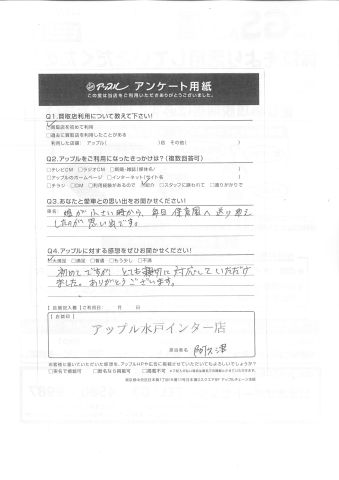 アップル アンケート用紙
この度は当店をご利用いただきありがとうございました。
Q1.買取店利用について教えて下さい!
買取店を初めて利用
□過去に買取店を利用したことがある
利用した店舗: アップル( )店 その他( )
Q2.アップルをご利用になったきっかけは?(複数回答可)
□テレビCM □ラジオCM □新聞・雑誌(媒体名/ )
□アップルのホームページ □インターネット(サイト名 )
□チラシ □DM □利用経験があるので 紹介 □スタッフに誘われて □通りがかりで
Q3.あなたと愛車との思い出をお聞かせください!
車名 娘が小さい時から、毎日保育園へ送り迎え
したのが思い出です。
Q4.アップルに対する感想をぜひお聞かせください!
大満足 □満足 □普通 □もう少し □不満
初めてですが、とても親切に対応していただけ
ました。ありがとうございます。
【店頭記入欄】ご利用日: 月 日
【店舗印】
アップル水戸インター店
担当者名 阿久津
□実名で掲載可 □匿名なら掲載可 □掲載不可